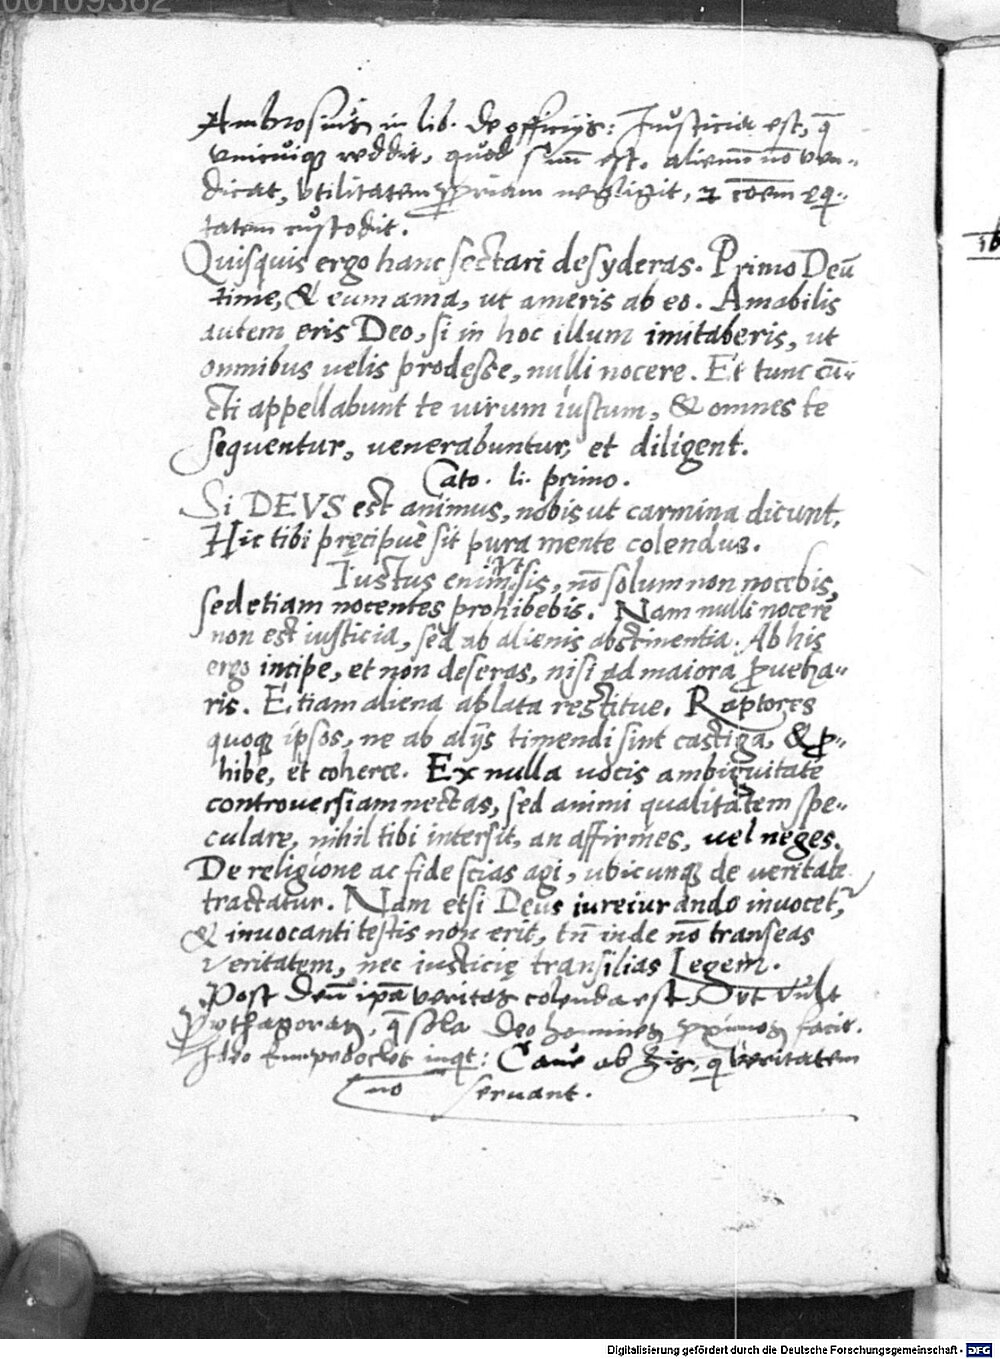 Ambrosius in lib. de officijs: Iusticia est, q̃
vnicuiqꝫ reddit, quod suũ est, alienũ nõ ven-
dicat, vtilitatem ꝓpriam negligit, & cõem eq̃-
tatem custodit.
Quisquis ergo hanc sectari desyderas. Primo Deũ
time, & eum ama, ut ameris ab eo. Amabilis
autem eris Deo, si in hoc illum imitaberis, ut
omnibus uelis prodesse, nulli nocere. Et tunc cũ-
cti appellabunt te uirum iustum, & omnes te
sequentur, uenerabuntur, et diligent.
Cato. li. primo.
Si DEVS est animus, nobis ut carmina dicunt,
Hic tibi pręcipuè sit pura mente colendus.
Iustus enim ut sis, nõ solum non nocebis,
sed etiam nocentes prohibebis. Nam nulli nocere
non est iusticia, sed ab alienis abstinentia. Ab his
ergo incipe, et non deseras, nisi ad maiora ꝓueha-
ris. Etiam aliena ablata restitue. Raptores
quoqꝫ ipsos, ne ab alijs timendi sint castiga, & ꝓ-
hibe, et coherce. Ex nulla uocis ambiguitate
controuersiam nectas, sed animi qualitatem spe-
culare, nihil tibi intersit, an affirmes, uel neges.
De religione ac fide scias agi, ubicunqꝫ de ueritate
tractatur. Nam etsi Deus iureiurando inuocet᷑,
& inuocanti testis non erit, tñ inde nõ transeas
veritatem, nec iusticię transilias Legem.
Post Deũ ipã veritas colenda est. Vt vult
Pythagoras, q̃ sola Deo homines ꝓximos facit.
Ideo Empedocles inqt: Caue ab his, q veritatem
nõ seruant.
16
Digitalisierung gefördert durch die Deutsche Forschungsgemeinschaft - DFG